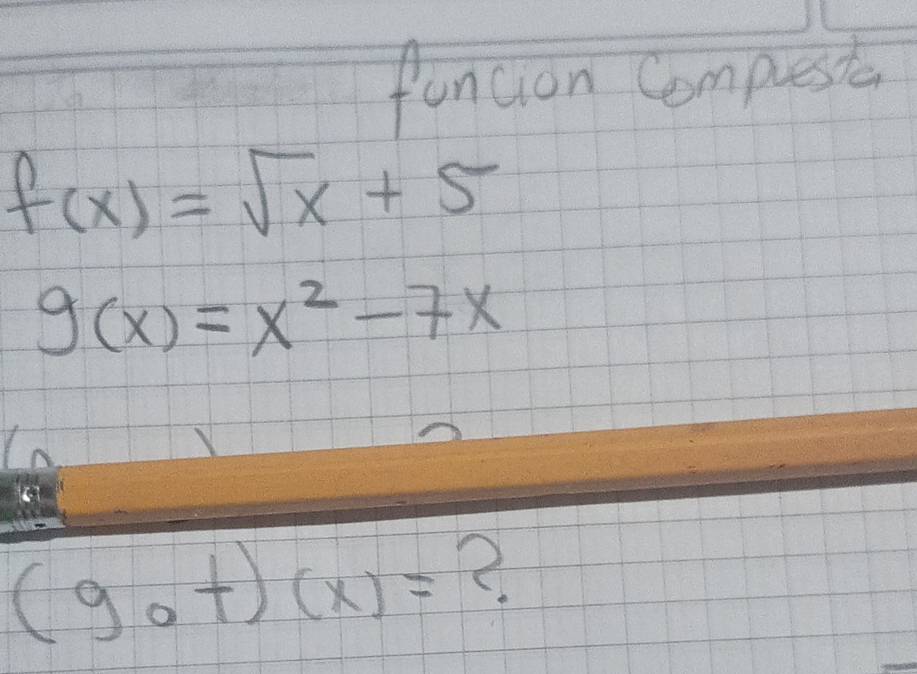 funcion Compuesta
f(x) = √x + 5
g(x) = x² - 7x
(g o f) (x) = ?